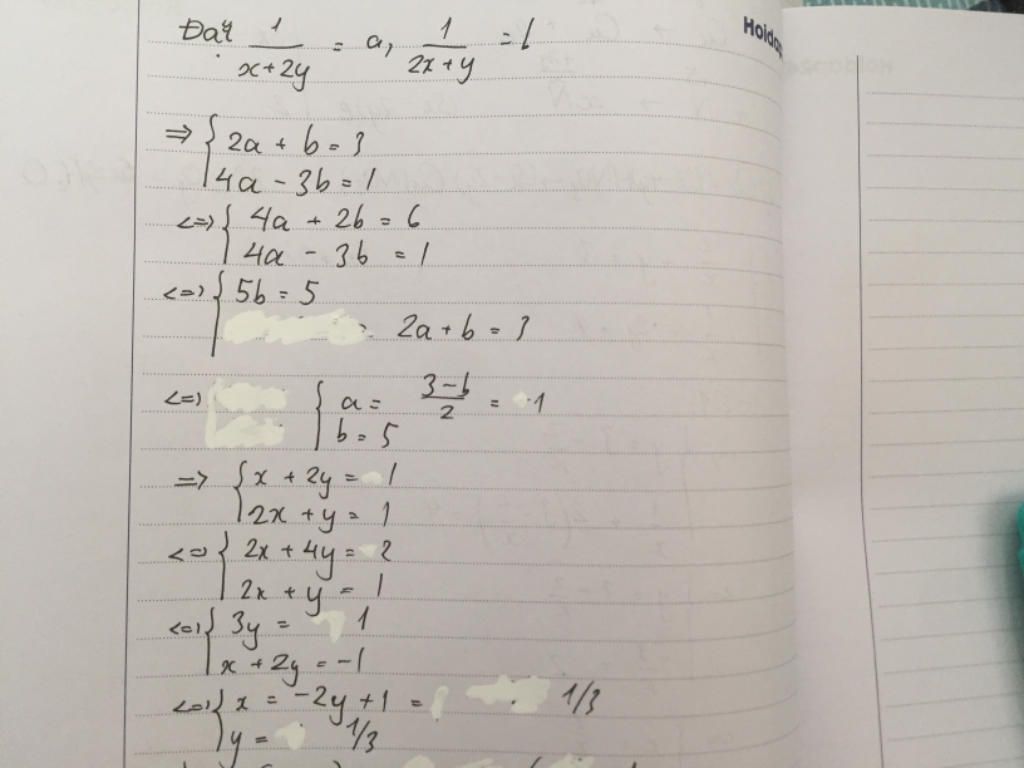 Đặt 1/(x+2y) = a, 1/(2x+y) = b
Holdap
⇒ { 2a + b = 3
4a - 3b = 1
<=> { 4a + 2b = 6
4a - 3b = 1
<=> { 5b = 5
2a + b = 3
<=> { a = (3-b)/2 = 1
b = 5
=> { x + 2y = 1
2x + y = 1
<=> { 2x + 4y = 2
2x + y = 1
<=> { 3y = 1
x + 2y = -1
<=> { x = -2y + 1 = 1/3
y = 1/3